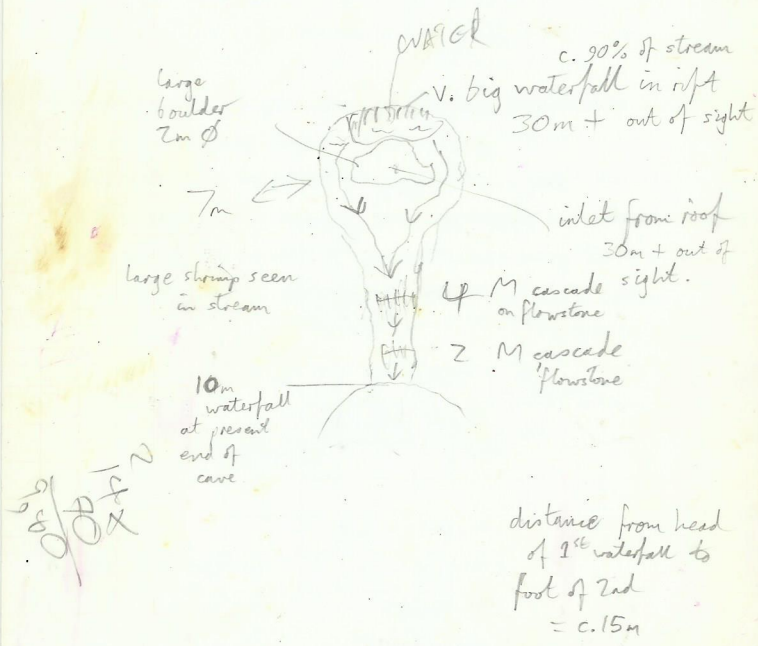 WATER
c. 90% of stream
v. big waterfall in rift
30m + out of sight
large
boulder
2m Ø
7m
inlet from roof
30m + out of
sight.
large shrimp seen
in stream
4 M cascade
on flowstone
2 M cascade
flowstone
10m
waterfall
at present
end of
cave
distance from head
of 1st waterfall to
foot of 2nd
= c.15m